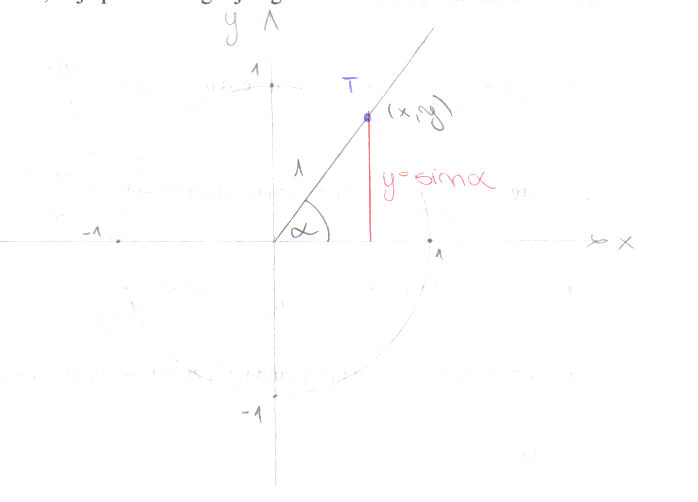 y
1
T
(x,y)
1
y=sinα
α
-1
1
x
-1